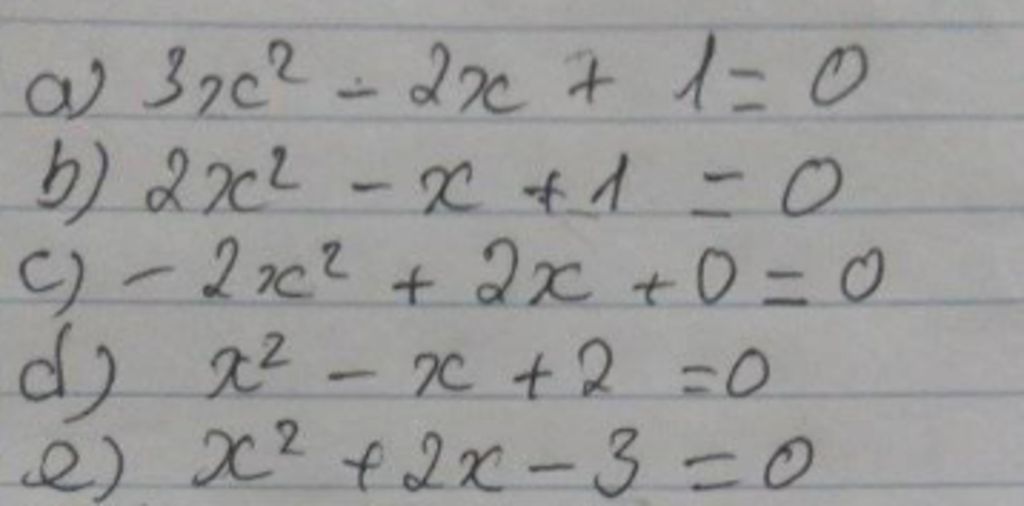 a) 3x² - 2x + 1 = 0
b) 2x² - x + 1 = 0
c) - 2x² + 2x + 0 = 0
d) x² - x + 2 = 0
e) x² + 2x - 3 = 0